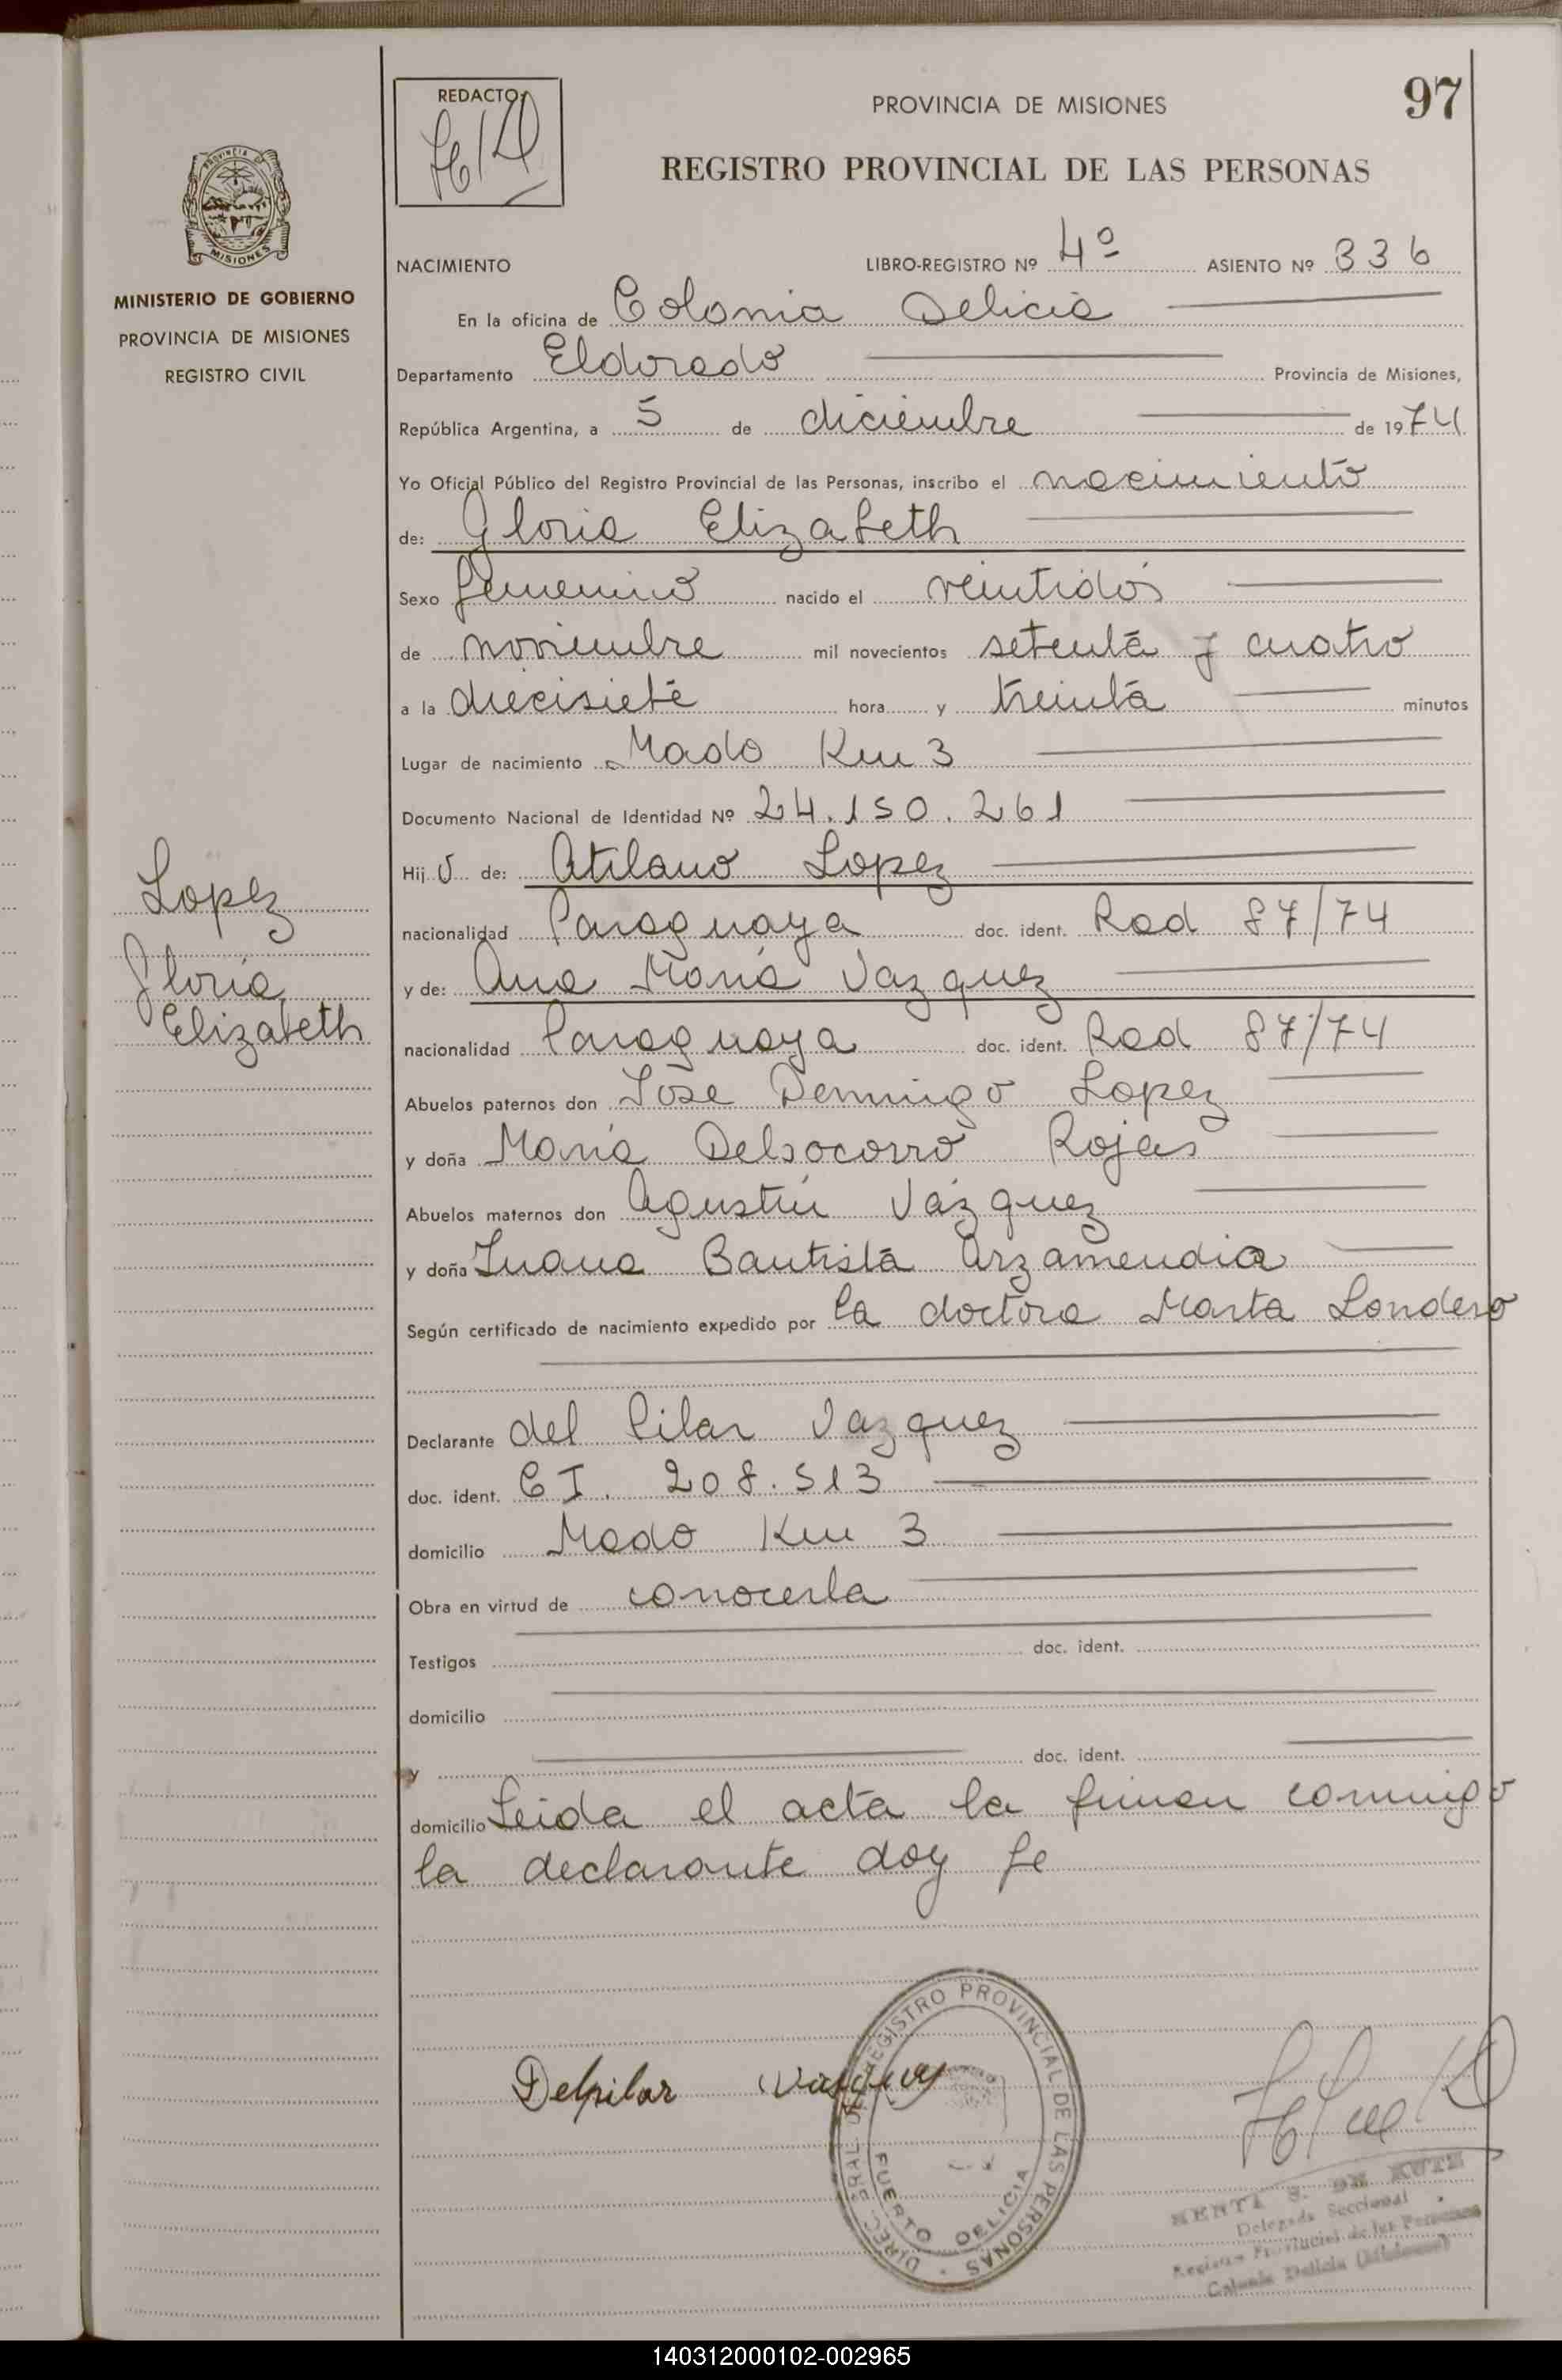 REDACTO:
PROVINCIA DE MISIONES
97
REGISTRO PROVINCIAL DE LAS PERSONAS
PROVINCIA DE
MISIONES
MINISTERIO DE GOBIERNO
PROVINCIA DE MISIONES
REGISTRO CIVIL
NACIMIENTO LIBRO-REGISTRO Nº 4º ASIENTO Nº 336
En la oficina de Colonia Delicia
Departamento Eldorado Provincia de Misiones,
República Argentina, a 5 de diciembre de 1974
Yo Oficial Público del Registro Provincial de las Personas, inscribo el nacimiento
de: Gloria Elizabeth
Sexo femenino nacido el veintidós
de noviembre mil novecientos setenta y cuatro
a la diecisiete hora y treinta minutos
Lugar de nacimiento Mado Km 3
Documento Nacional de Identidad Nº 24.150.261
Hij O de: Atilano Lopez
nacionalidad Paraguaya doc. ident. Rad 87/74
y de: Ana María Vazquez
nacionalidad Paraguaya doc. ident. Rad 87/74
Abuelos paternos don José Domingo Lopez
y doña María Delsocorro Rojas
Abuelos maternos don Agustín Vázquez
y doña Juana Bautista Arzamendia
Según certificado de nacimiento expedido por la doctora Marta Londero
Declarante del Pilar Vazquez
doc. ident. CI. 208.513
domicilio Mado Km 3
Obra en virtud de conocerla
Testigos doc. ident.
domicilio
y doc. ident.
domicilio Leida el acta la firman conmigo
la declarante doy fe
Lopez
Gloria
Elizabeth
Delpilar Vasquez
DIREC. GRAL. DE REGISTRO PROVINCIAL DE LAS PERSONAS
PUERTO DELICIA
Delegada Seccional
Registro Provincial de las Personas
Colonia Delicia (Misiones)
140312000102-002965